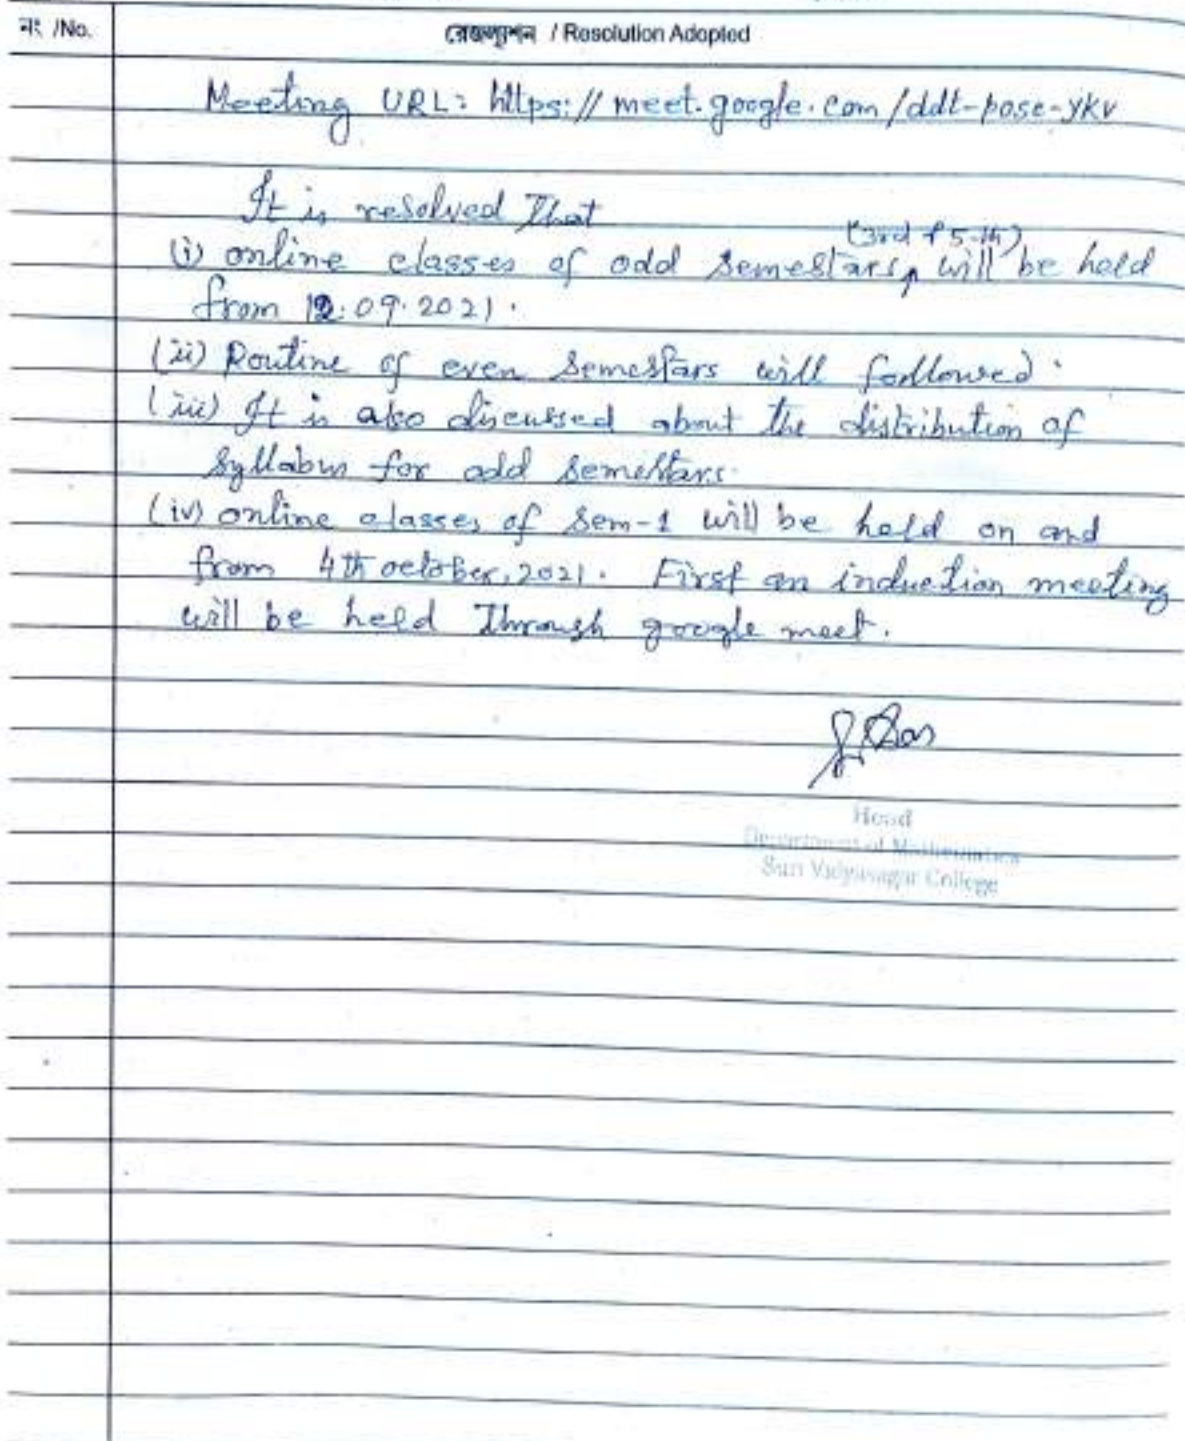 নং /No.
রেজল্যুশন / Resolution Adopted
Meeting URL: https://meet.google.com/ddt-pose-ykv
It is resolved That
(3rd & 5th)
(i) online classes of odd Semestars, will be held
from 12.09.2021.
(ii) Routine of even Semestars will followed.
(iii) It is also discussed about the distribution of
Syllabus for odd Semestars.
(iv) online classes of Sem-1 will be held on and
from 4th october, 2021. First an induction meeting
will be held Through google meet.
Head
Department of Mathematics
Suri Vidyasagar College